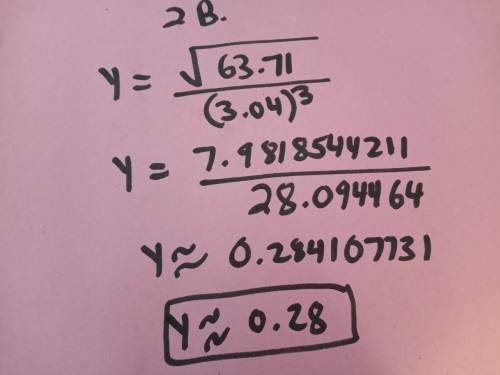 2B.
y = √63.71 / (3.04)³
y = 7.9818544211 / 28.094464
y ≈ 0.284107731
y ≈ 0.28